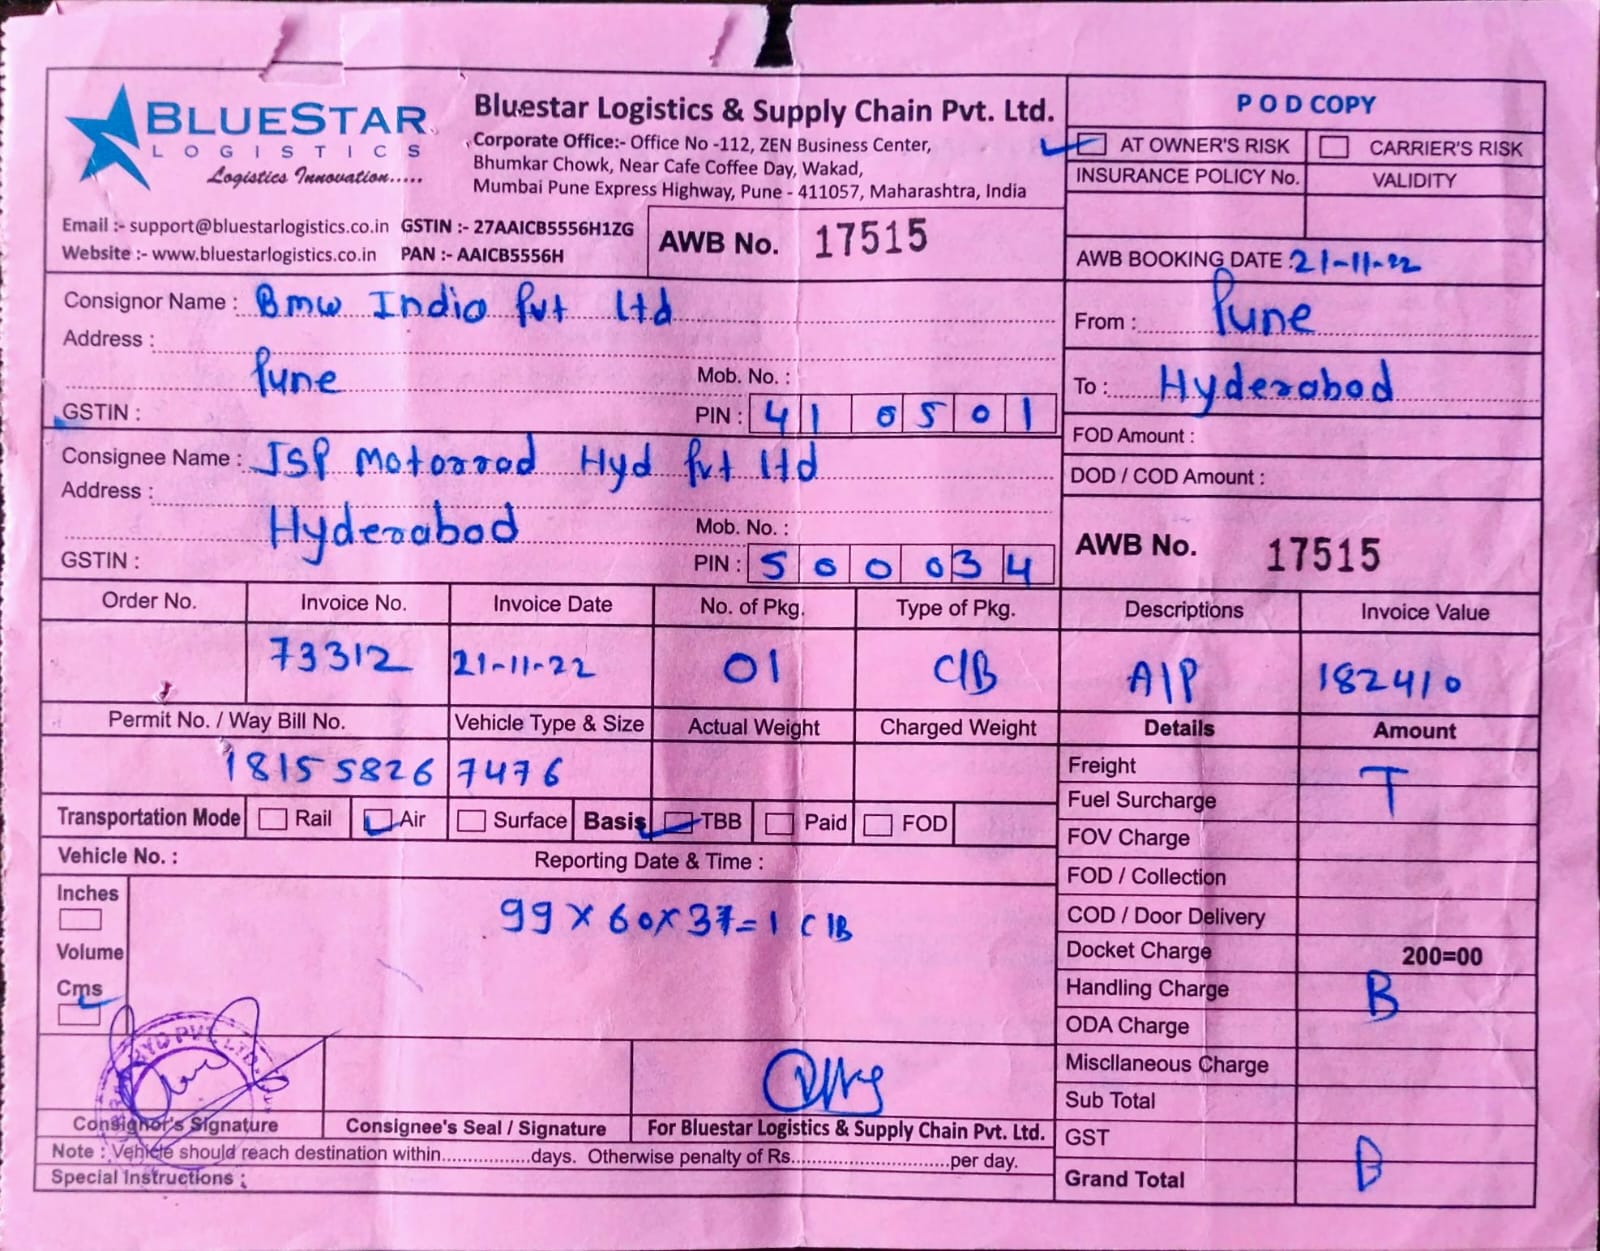 BLUESTAR
LOGISTICS
Logistics Innovation.....
Bluestar Logistics & Supply Chain Pvt. Ltd.
Corporate Office:- Office No -112, ZEN Business Center,
Bhumkar Chowk, Near Cafe Coffee Day, Wakad,
Mumbai Pune Express Highway, Pune - 411057, Maharashtra, India
Email :- support@bluestarlogistics.co.in GSTIN :- 27AAICB5556H1ZG
Website :- www.bluestarlogistics.co.in PAN :- AAICB5556H
AWB No. 17515
POD COPY
AT OWNER'S RISK CARRIER'S RISK
INSURANCE POLICY No. VALIDITY
AWB BOOKING DATE : 21-11-22
From : Pune
To : Hyderabad
FOD Amount :
DOD / COD Amount :
AWB No. 17515
Consignor Name : Bmw India Pvt Ltd
Address :
Pune Mob. No. :
GSTIN : PIN : 410501
Consignee Name : JSP Motorrad Hyd Pvt Ltd
Address :
Hyderabad Mob. No. :
GSTIN : PIN : 500034
Order No. Invoice No. Invoice Date No. of Pkg. Type of Pkg. Descriptions Invoice Value
73312 21-11-22 01 C/B A/P 182410
Permit No. / Way Bill No. Vehicle Type & Size Actual Weight Charged Weight Details Amount
18155826 7476
Freight T
Fuel Surcharge
FOV Charge
FOD / Collection
COD / Door Delivery
Docket Charge 200=00
Handling Charge B
ODA Charge
Miscllaneous Charge
Sub Total
GST
Grand Total B
Transportation Mode Rail Air Surface Basis TBB Paid FOD
Vehicle No. : Reporting Date & Time :
Inches
Volume
Cms
99 x 60 x 37 = 1 C/B
Consignor's Signature Consignee's Seal / Signature For Bluestar Logistics & Supply Chain Pvt. Ltd.
Note : Vehicle should reach destination within.................days. Otherwise penalty of Rs..............................per day.
Special Instructions :